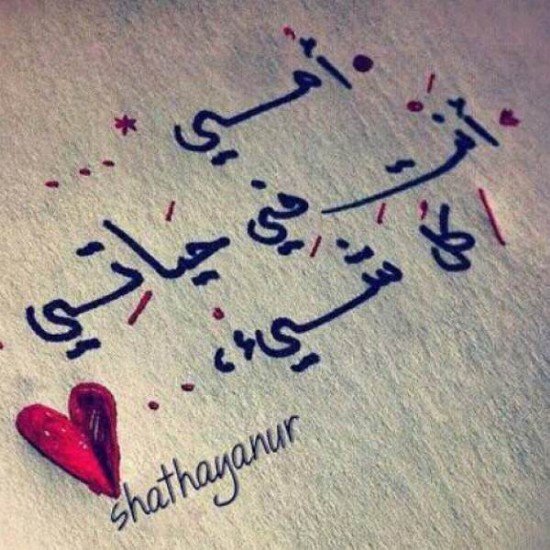 أمي
أنتِ في حياتي
كل شيء،
shathayanur